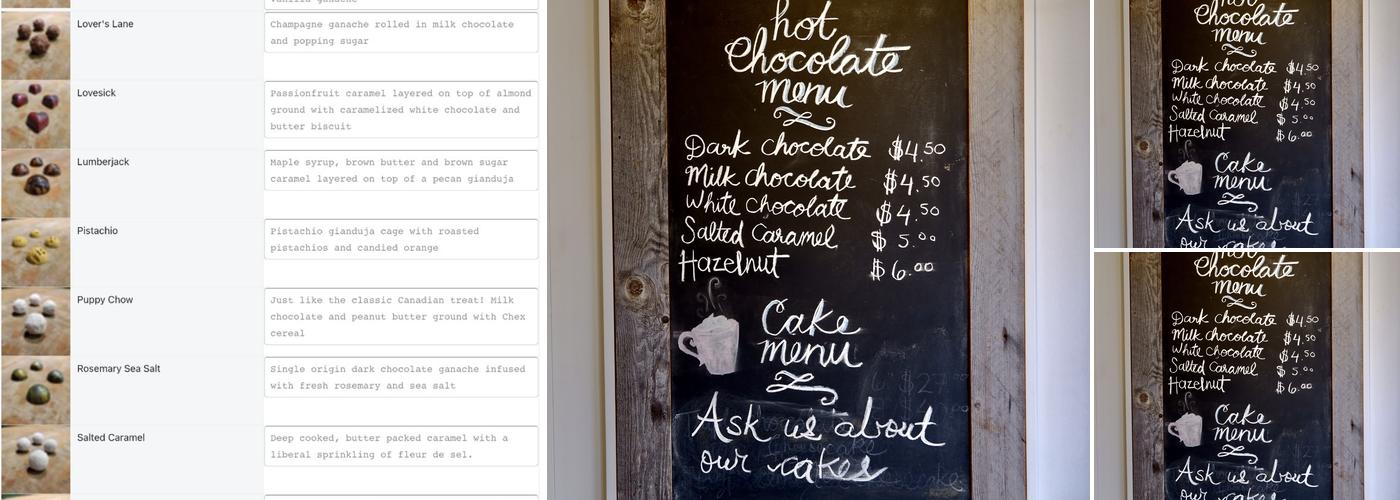 Lover's Lane
Champagne ganache rolled in milk chocolate
and popping sugar
Lovesick
Passionfruit caramel layered on top of almond
ground with caramelized white chocolate and
butter biscuit
Lumberjack
Maple syrup, brown butter and brown sugar
caramel layered on top of a pecan gianduja
Pistachio
Pistachio gianduja cage with roasted
pistachios and candied orange
Puppy Chow
Just like the classic Canadian treat! Milk
chocolate and peanut butter ground with Chex
cereal
Rosemary Sea Salt
Single origin dark chocolate ganache infused
with fresh rosemary and sea salt
Salted Caramel
Deep cooked, butter packed caramel with a
liberal sprinkling of fleur de sel.
hot
Chocolate
menu
Dark chocolate $4.50
Milk chocolate $4.50
White chocolate $4.50
Salted Caramel $5.00
Hazelnut $6.00
Cake
menu
Ask us about
our cakes
hot
Chocolate
menu
Dark chocolate $4.50
Milk chocolate $4.50
White chocolate $4.50
Salted Caramel $5.00
Hazelnut $6.00
Cake
menu
Ask us about
our cakes
Chocolate
menu
Dark chocolate $4.50
Milk chocolate $4.50
White chocolate $4.50
Salted Caramel $5.00
Hazelnut $6.00
Cake
menu
Ask us about
our cakes